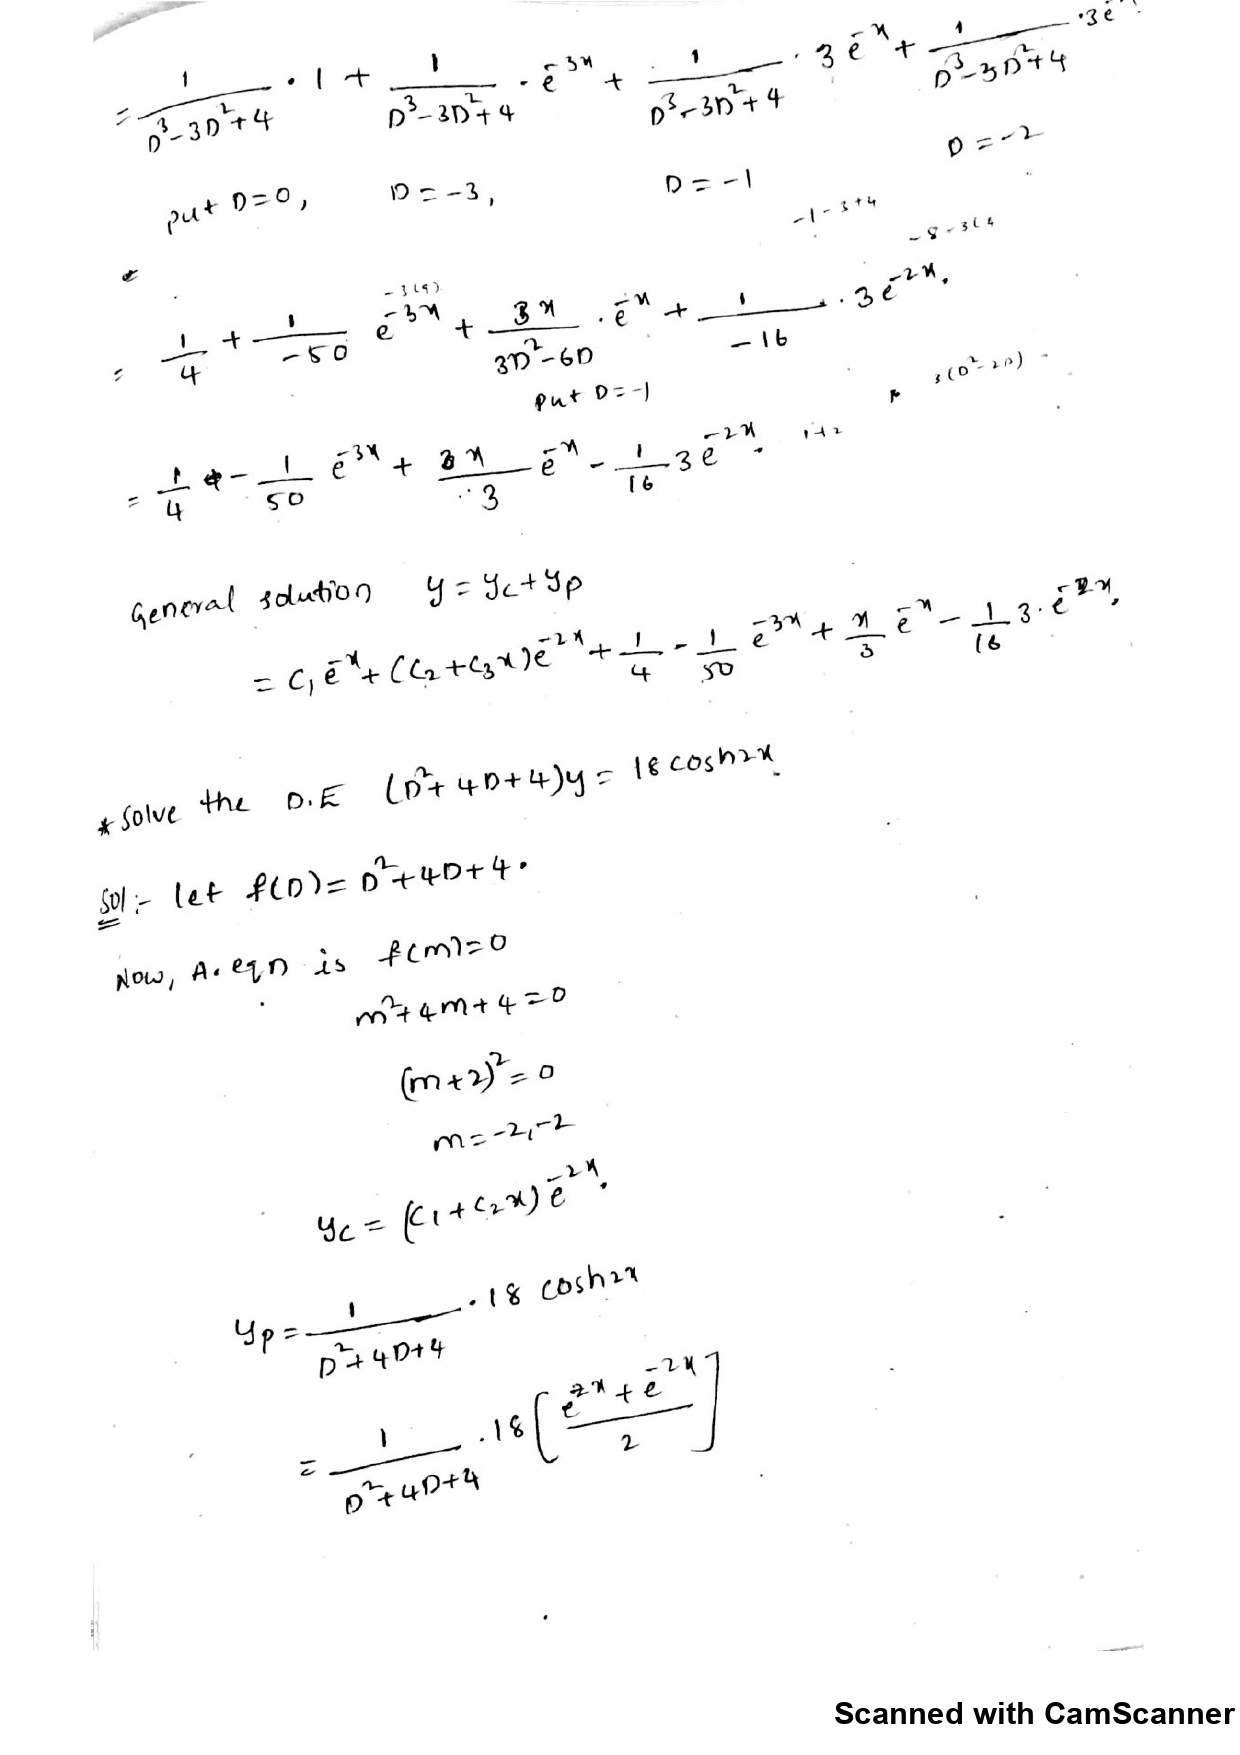 = 1/(D³-3D²+4) · 1 + 1/(D³-3D²+4) · e^-3x + 1/(D³-3D²+4) · 3e^-x + 1/(D³-3D²+4) · 3e
put D=0, D=-3, D=-1 D=-2
-1-3+4 -8-3(4
-3(9)
= 1/4 + 1/-50 e^-3x + 3x/(3D²-6D) · e^-x + 1/-16 · 3e^-2x.
put D=-1 3(D²-2D)
= 1/4 - 1/50 e^-3x + 3x/3 e^-x - 1/16 3e^-2x. 1+2
General solution y = yc+yp
= C₁e^-x + (C₂+C₃x)e^-2x + 1/4 - 1/50 e^-3x + x/3 e^-x - 1/16 3·e^-2x.
* Solve the D.E (D²+4D+4)y = 18 cosh2x.
Sol:- let f(D) = D²+4D+4.
Now, A.eqn is f(m)=0
m²+4m+4=0
(m+2)²=0
m=-2,-2
yc = (C₁+C₂x)e^-2x.
yp = 1/(D²+4D+4) · 18 cosh2x
= 1/(D²+4D+4) · 18[(e^2x + e^-2x)/2]
Scanned with CamScanner